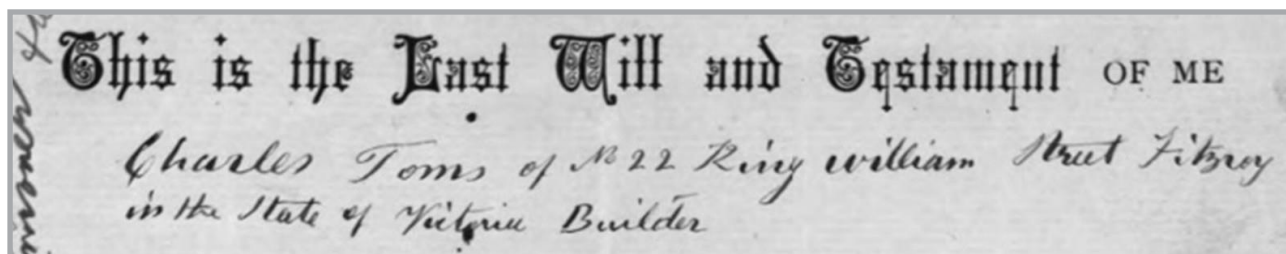 This is the Last Will and Testament OF ME
Charles Toms of No 22 King william Street Fitzroy
in the State of Victoria Builder